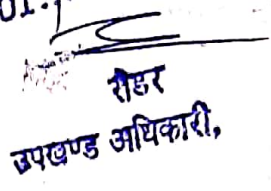 01.
रीडर
उपखण्ड अधिकारी,